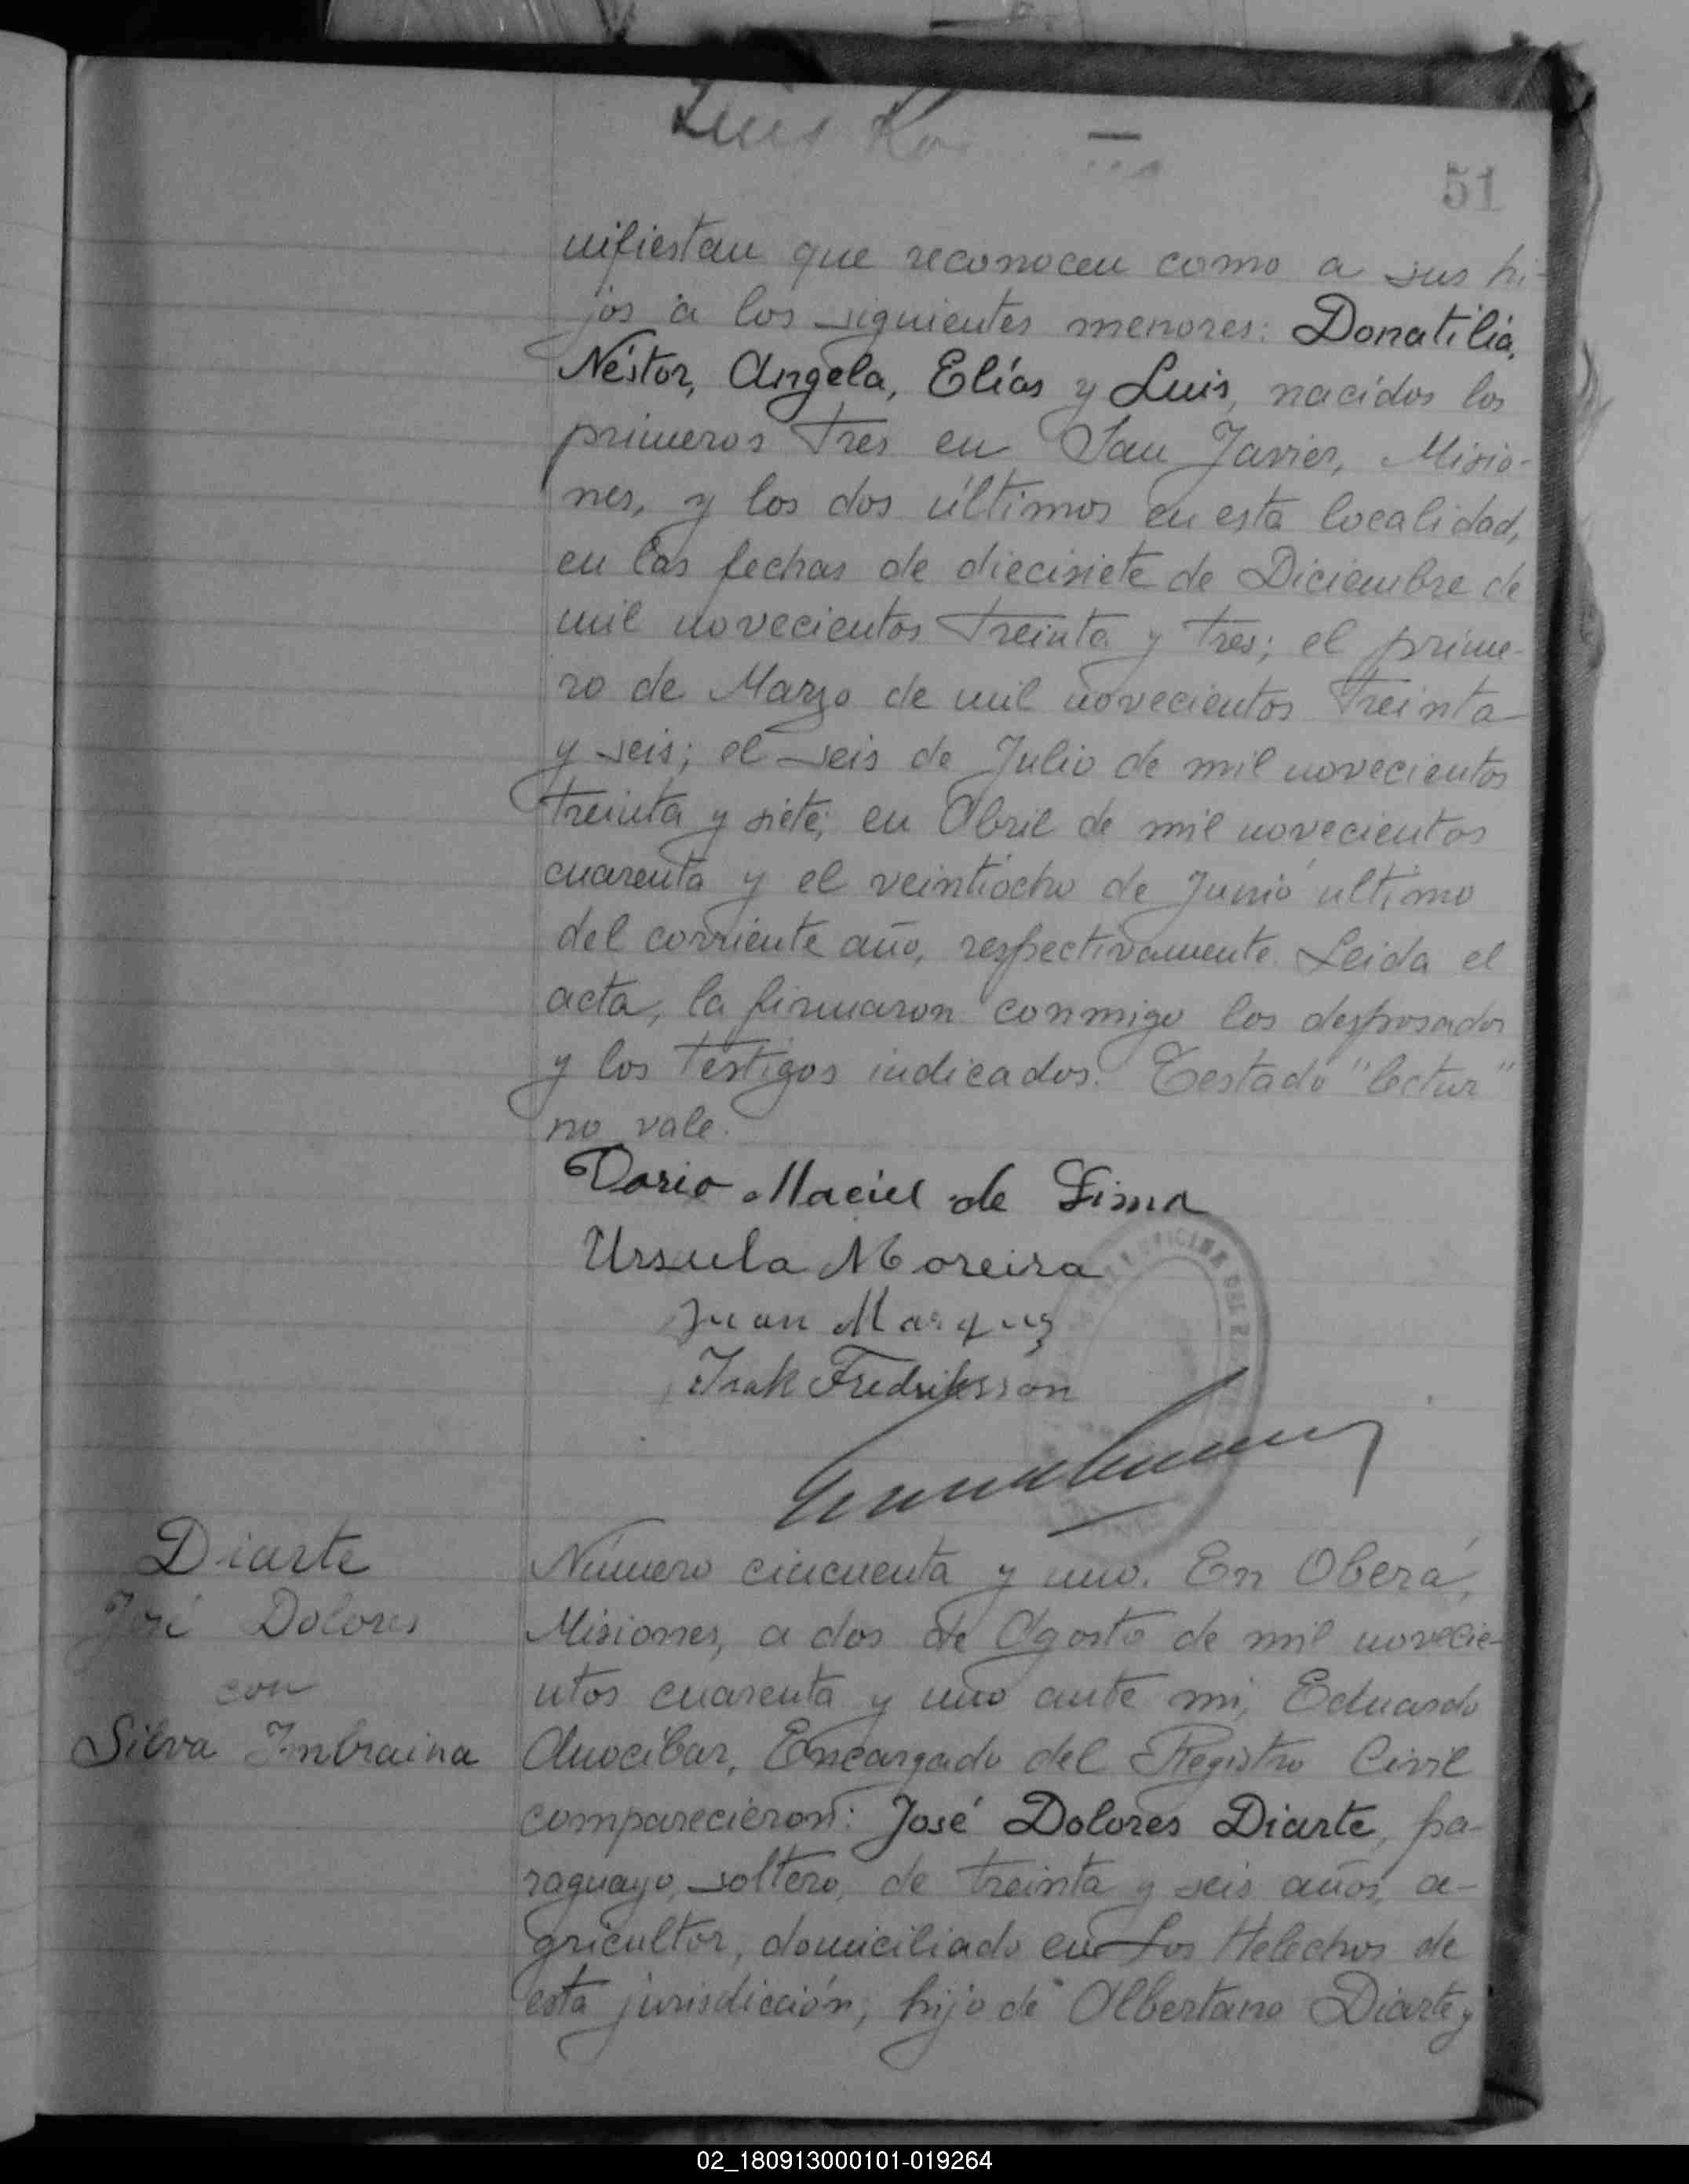 Luis
51
nifiestan que reconocen como a sus hi-
jos a los siguientes menores: Donatilia,
Néstor, Angela, Elías y Luis, nacidos los
primeros tres en San Javier, Misio-
nes, y los dos últimos en esta localidad,
en las fechas de diecisiete de Diciembre de
mil novecientos treinta y tres; el prime-
ro de Marzo de mil novecientos treinta
y seis; el seis de Julio de mil novecientos
treinta y siete; en Abril de mil novecientos
cuarenta y el veintiocho de Junio último
del corriente año, respectivamente. Leida el
acta, la firmaron conmigo los desposados
y los testigos indicados. Testado "lectur"
no vale.
Dario Maciel de Lima
Ursula Moreira
Juan Marquez
Isak Fredriksson
Diarte
José Dolores
con
Silva Imbraina
Número cincuenta y uno. En Oberá,
Misiones, a dos de Agosto de mil novecie-
ntos cuarenta y uno ante mi, Eduardo
Anocibar, Encargado del Registro Civil
comparecieron: José Dolores Diarte, pa-
raguayo, soltero, de treinta y seis años, a-
gricultor, domiciliado en Los Helechos de
esta jurisdicción, hijo de Albertano Diarte y
02_180913000101-019264